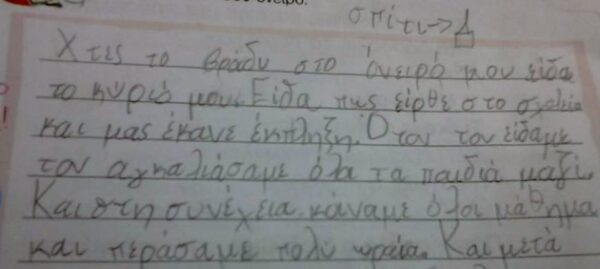 σπίτι→
Χτες το βράδυ στο όνειρό μου είδα
το κύριό μου. Είδα πως είρθε στο σχολείο
και μας έκανε έκπληξη. Όταν τον είδαμε
τον αγκαλιάσαμε όλα τα παιδιά μαζί.
Και στη συνέχεια κάναμε όλοι μάθημα
και περάσαμε πολύ ωραία. Και μετά